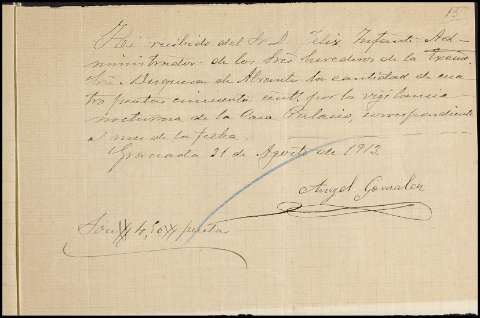 15
He recibido del Sr. D. Felix Infante Ad-
ministrador de los Sres herederos de la Excma.
Sra. Duquesa de Abrante la cantidad de cua-
tro pesetas cincuenta cents. por la vigilancia
nocturna de la Casa Palacio, correspondiente
al mes de la fecha.
Granada 31 de Agosto de 1912.
Angel Gonzalez
Son 4,50 pesetas